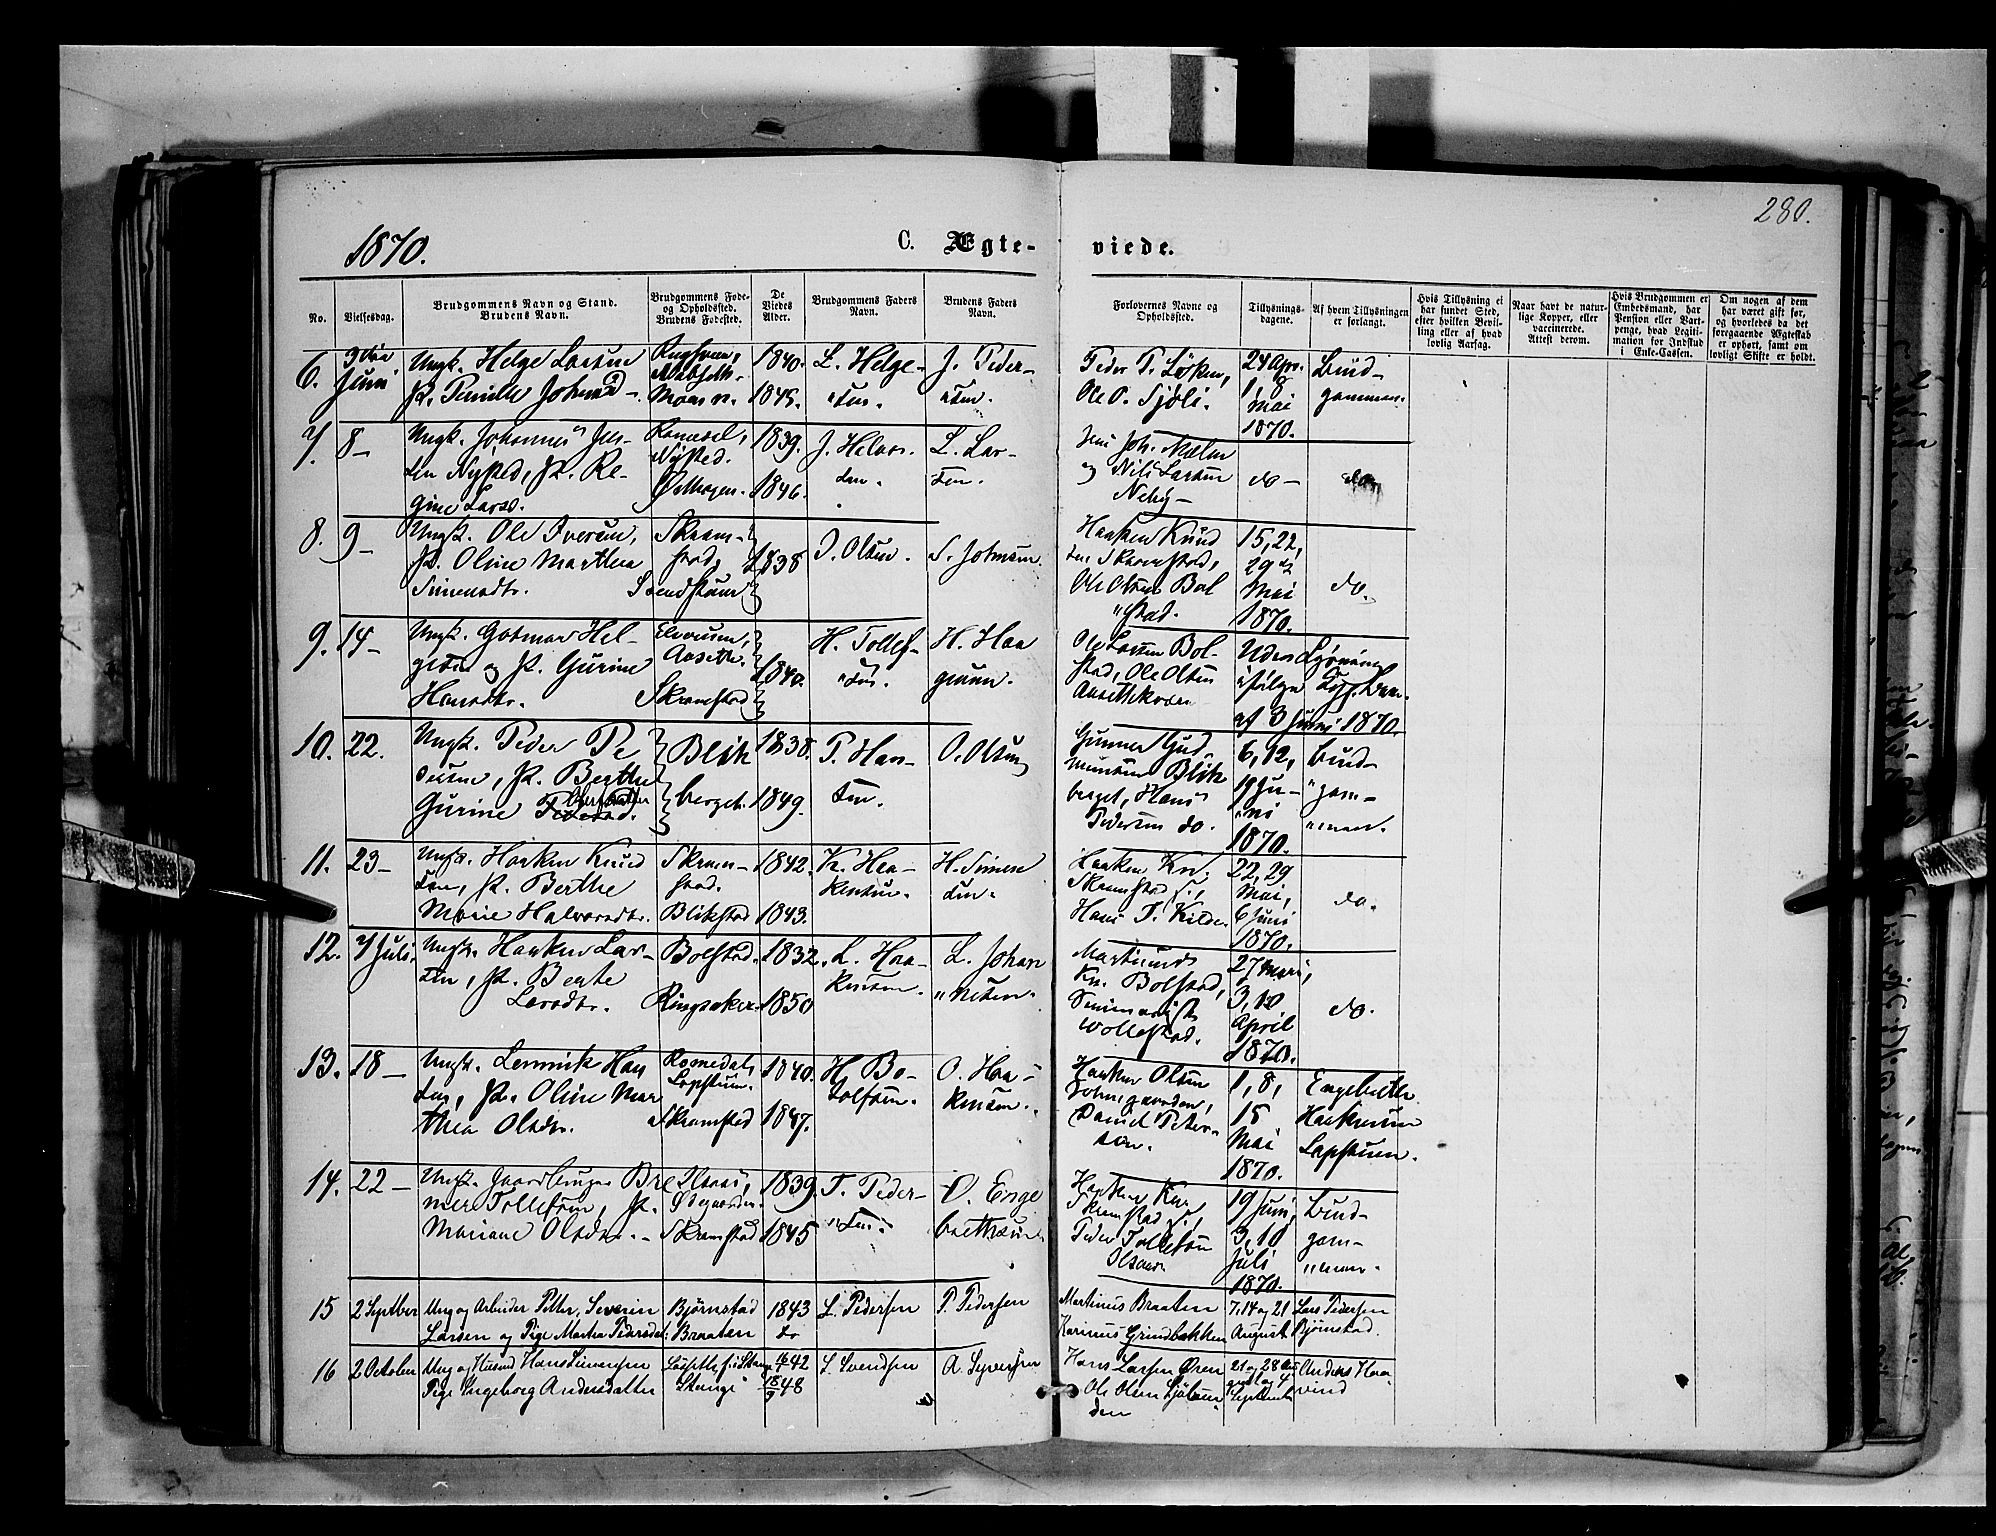 280.
1870.
C. Ægte- viede.
No.
Vielsesdag.
Brudgommens Navn og Stand.
Brudens Navn.
Brudgommens Føde-
og Opholdssted.
Brudens Fødested.
De
Viedes
Alder.
Brudgommens Faders
Navn.
Brudens Faders
Navn.
Forlovernes Navne og
Opholdssted.
Tillysnings-
dagene.
Af hvem Tillysningen
er forlangt.
Hvis Tillysning ei
har fundet Sted,
efter hvilken Bevil-
ling eller af hvad
lovlig Aarsag.
Naar havt de natur-
lige Kopper, eller
vaccinerede.
Attest derom.
Hvis Brudgommen er
Embedsmand, har
Pension eller Vart-
penge, hvad Legiti-
mation for Indskud
i Enke-Cassen.
Om nogen af dem
har været gift før,
og hvorledes da det
foregaaende Ægteskab
er ophørt, samt om
lovligt Skifte er holdt.
6.
Juni
Ungk. Helge Larsen
P. Pernille Johnsd.
1840.
1845.
L. Helge-
sen.
J. Peder-
sen.
Peder P. Løken,
Ole O. Sjøli.
24 Apr.
1, 8
Mai
1870.
Brud-
gommen.
7.
8-
Ungk. Johannes Jen-
sen Nysted, P. Re-
gine Larsd.
Nysted.
1839.
1846.
L. Lar-
sen.
og Nils Larsen
do-
do.
8.
9-
Ungk. Ole Iversen,
P. Oline Marthea
Simensdtr.
Skram-
stad,
1838
I. Olsen.
S. Johnsen.
Haaken Knud
sen Skramstad,
Ole Olsen Bol
stad.
15, 22,
29de
Mai
1870.
do.
9.
14-
Ungk. Gotmar Hel-
gesen og P. Gurine
Hansdtr.
Elverum,
Skramstad
1840.
H. Tollef-
sen.
H. Haa
gensen.
Ole Larsen Bol-
stad, Ole Olsen
Uden Lysning
ifølge
af 3 Juni 1870.
10.
22.
Ungk. Peder Pe
dersen, P. Berthe
Gurine Olsdatter
Blik
berget.
1838.
1849.
P. Han-
sen.
O. Olsen
Gunner Gud-
mundsen Blik
berget, Hans
Pedersen do.
6, 12,
19 Ju-
ni
1870.
Brud-
gom-
men.
11.
23-
Ungk. Haaken Knud
sen, P. Berthe
Marie Halvorsdtr.
Skram-
stad.
Blikstad
1842.
1843.
K. Haa-
kensen.
H. Simen
sen.
Haaken Kn.
Skramstad
Hans T. Kilde.
22, 29
Mai,
6 Juni
1870.
do.
12.
7 Juli.
Ungk. Haaken Lar-
sen, P. Berte
Larsdtr.
Bolstad.
Ringsaker.
1832.
1850
L. Haa-
kensen.
L. Johan
nesen.
Martinus
Kn. Bolstad,
27 Marts,
3, 10
April
1870.
do.
13.
18-
Ungk. Lennik Han
sen, P. Oline Mar
thea Olsdtr.
Romedal,
Skramstad
1840.
1847.
H. Bo-
tolfsen.
O. Haa-
kensen.
Haaken Olsen
Daniel Peter-
sen.
1, 8,
15
Mai
1870.
Engebrett
Haakensen
Lapstuen.
14.
22-
Ungk. Gaardbruger
Tollefsen, P.
Mariane Olsdtr.
Skramstad
1839.
1845
T. Peder-
sen.
O. Enge
brethsen.
Haaken Kn.
Skramstad
Peder Tollefsen
19 Juni,
3, 10
Juli
1870.
Brud-
gom-
men.
15
2 Septber
Ung og Arbeider Petter Severin
Larsen og Pige Martia Pedersdat:
Bjørnstad
Braaten
1843
do
L. Pedersen
P. Pedersen
Martinus Braaten
Karinus Grindbakken
7, 14 og 21
August
Lars Pedersen
Bjørnstad.
16
2 October
Ung og Husmd Hans Simensen
Pige Ingeborg Andersdatter
Stange
42
48
S. Svendsen
A. Syversen
Hans Larsen Øren
Ole Olsen
21 og 28
September